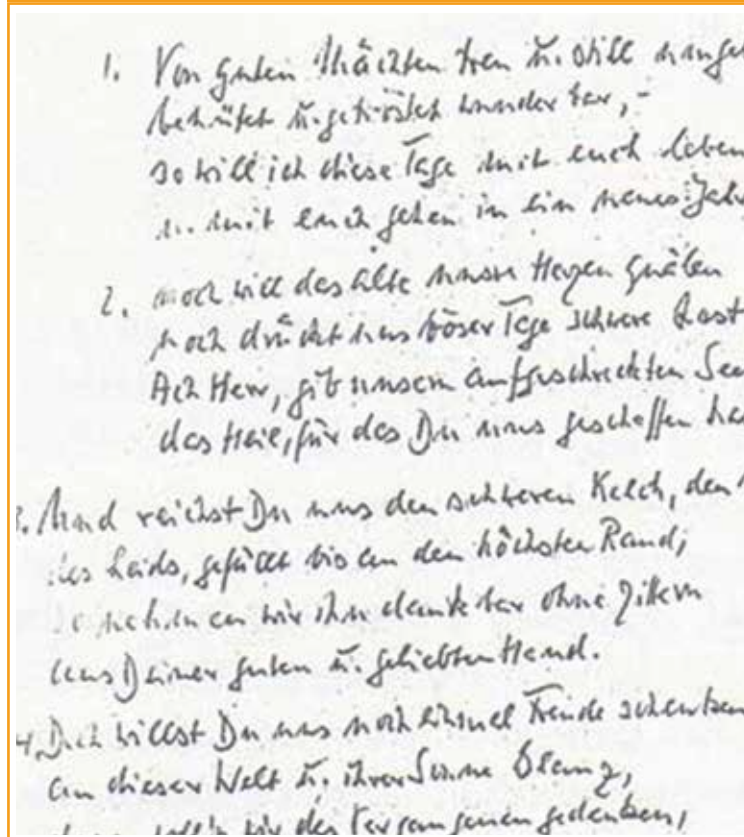 1. Von guten Mächten treu u. still umge
behütet u. getröstet wunderbar, –
so will ich diese Tage mit euch leben
u. mit euch gehen in ein neues Jahr
2. noch will das alte unsre Herzen quälen
noch drückt uns böser Tage schwere Last
Ach Herr, gib unsern aufgeschreckten See
das Heil, für das Du uns geschaffen ha
3. Und reichst Du uns den schweren Kelch, den
des Leids, gefüllt bis an den höchsten Rand;
so nehmen wir ihn dankbar ohne Zittern
aus Deiner guten u. geliebten Hand.
4. Doch willst Du uns noch einmal Freude schenken
an dieser Welt u. ihrer Sonne Glanz,
wolln wir des Vergangenen gedenken,